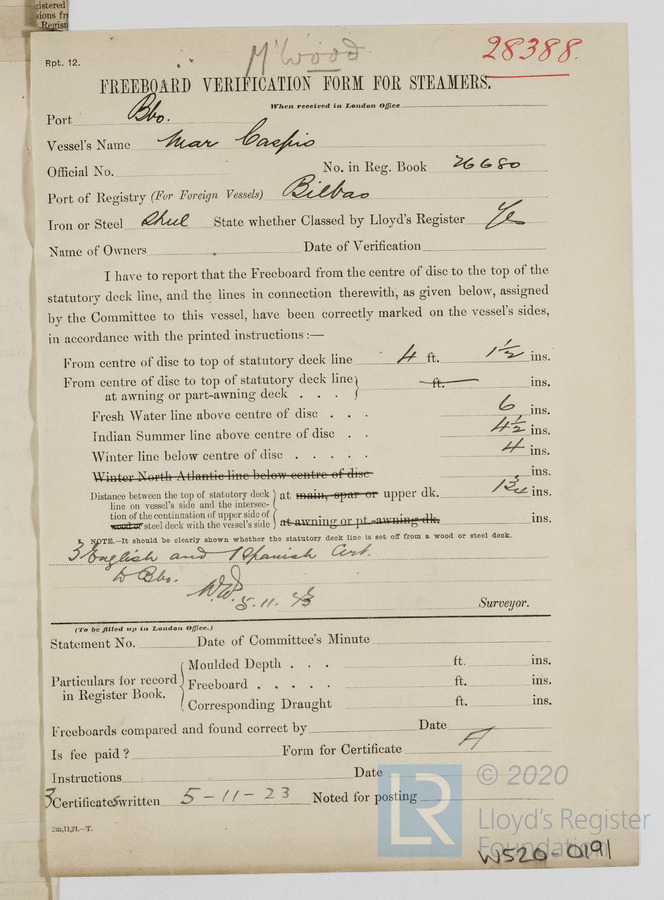 gistered
sions fr
Regist
Rpt. 12.
M'Wood
28388.
FREEBOARD VERIFICATION FORM FOR STEAMERS.
When received in London Office
Port Bbo.
Vessel's Name Mar Caspio
Official No. No. in Reg. Book 26680
Port of Registry (For Foreign Vessels) Bilbao
Iron or Steel Steel State whether Classed by Lloyd's Register Yes
Name of Owners Date of Verification
I have to report that the Freeboard from the centre of disc to the top of the
statutory deck line, and the lines in connection therewith, as given below, assigned
by the Committee to this vessel, have been correctly marked on the vessel's sides,
in accordance with the printed instructions :—
From centre of disc to top of statutory deck line 4 ft. 1½ ins.
From centre of disc to top of statutory deck line
at awning or part-awning deck . . . ft. ins.
Fresh Water line above centre of disc . . . 6 ins.
Indian Summer line above centre of disc . . 4½ ins.
Winter line below centre of disc . . . . . 4 ins.
Winter North Atlantic line below centre of disc ins.
Distance between the top of statutory deck
line on vessel's side and the intersec-
tion of the continuation of upper side of
wood or steel deck with the vessel's side
at main, spar or upper dk. 1¾ ins.
at awning or pt.-awning dk. ins.
NOTE.—It should be clearly shown whether the statutory deck line is set off from a wood or steel deck.
3 English and 1 Spanish Cert.
to Bbo.
5.11.23
Surveyor.
(To be filled up in London Office.)
Statement No. Date of Committee's Minute
Particulars for record
in Register Book.
Moulded Depth . . . ft. ins.
Freeboard . . . . . ft. ins.
Corresponding Draught ft. ins.
Freeboards compared and found correct by Date
Is fee paid ? Form for Certificate A
Instructions Date
3 Certificates written 5-11-23 Noted for posting
2m,11,21.—T.
LR
© 2020
Lloyd's Register
Foundation
W520-0191